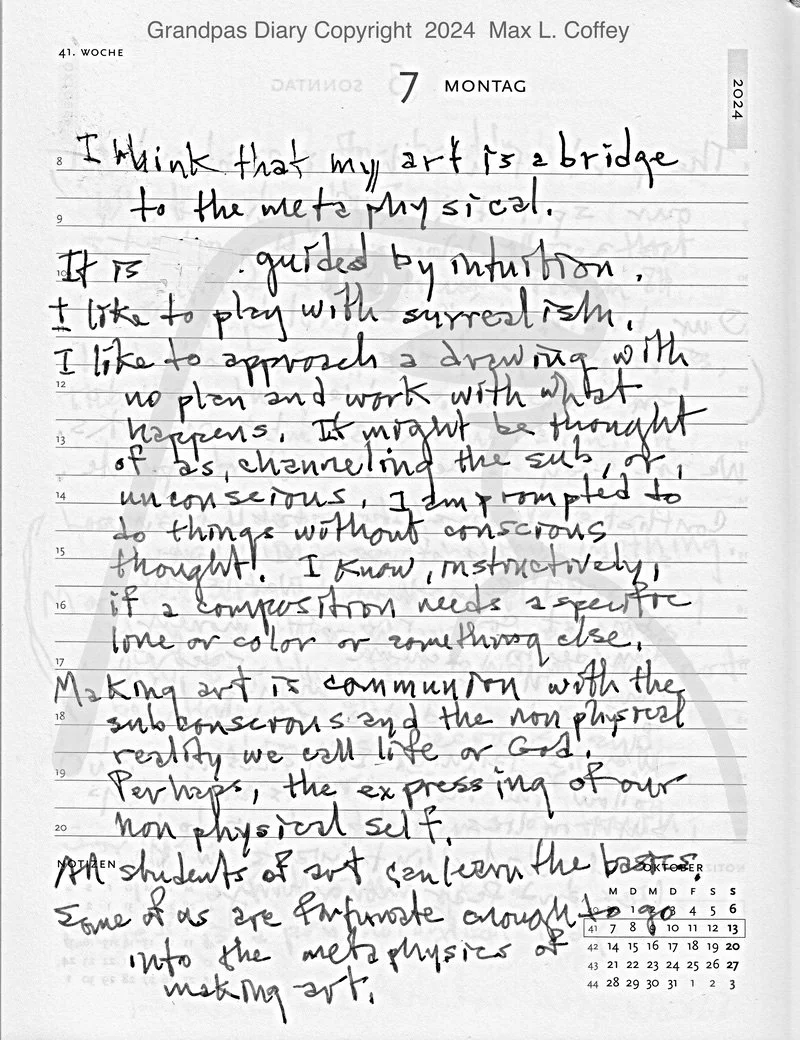 Grandpas Diary Copyright 2024 Max L. Coffey
41. WOCHE
7 MONTAG
2024
8 I think that my art is a bridge
9 to the metaphysical.
10 It is . guided by intuition.
I like to play with surrealism.
I like to approach a drawing with
12 no plan and work with what
13 happens. It might be thought
of as, channeling the sub, or,
14 unconscious. I am prompted to
do things without conscious
15 thought! I know, instinctively,
16 if a composition needs a specific
line or color or something else.
17 Making art is communion with the
18 subconscious and the non physical
reality we call life or God.
19 Perhaps, the expressing of our
20 non physical self.
NOTIZEN
All students of art can learn the basics.
Some of us are fortunate enough to go
into the metaphysics of
making art.
OKTOBER
M D M D F S S
1 3 4 5 6
41 7 8 9 10 11 12 13
42 14 15 16 17 18 19 20
43 21 22 23 24 25 26 27
44 28 29 30 31 1 2 3